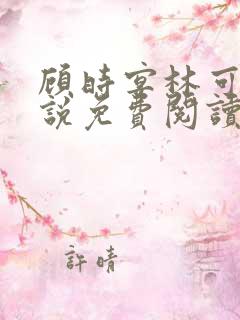 顾时宴林可
說免費閱讀
許晴